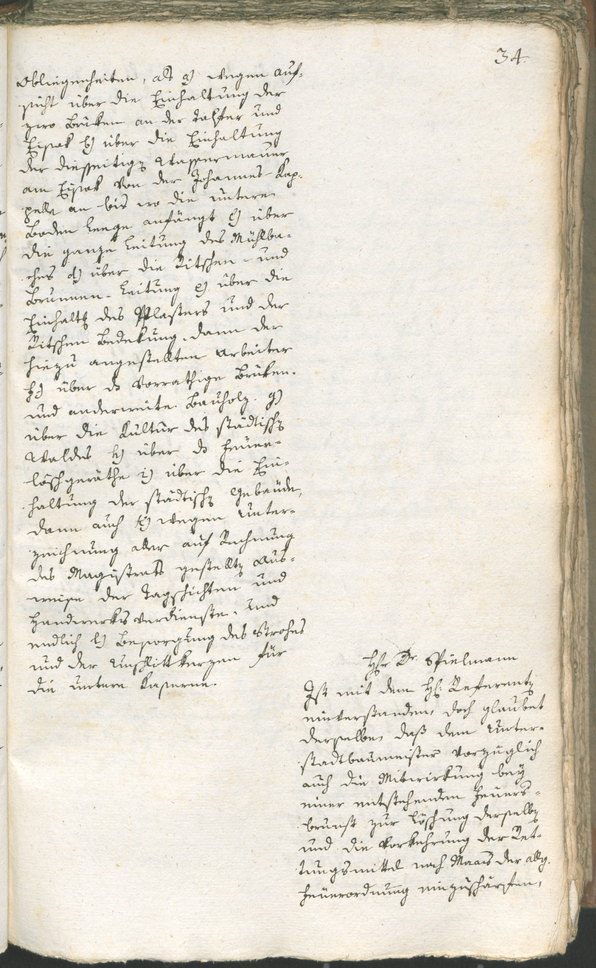 34.
Obliegenheiten, als a) wegen Auf-
sicht über die Einhaltung der
zwo Brüken an der Talfer und
Eisak b) über die Einhaltung
der diesseitigen Wassermauer
am Eisak von der Johannes Kap-
pelle an bis wo die untere
Boden Leege anfängt c) über
die ganze Leitung des Mühlba-
ches d) über die Ritschen- und
Brunnen-Leitung e) über die
Einhaltg des Pflasters und der
Ritschen Bedekung, dann der
hiezu angestellten Arbeiter
f) über das vorräthige Brüken-
und anderweite Bauholz. g)
über die Kultur des städtischen
Waldes h) über das Feuer-
löschgeräthe i) über die Ein-
haltung der städtischen Gebäude,
dann auch k) wegen Unter-
zeichnung aller auf Rechnung
des Magistrats gestellten Aus-
weise der Tagschichten und
Handwerksverdienste. Und
endlich l) Besorgung des Strohes
und der Unschlittkerzen für
die untere Kaserne.
Hr. Dr. Spielmann
Ist mit dem H. Referenten
einverstanden, doch glaubet
derselbe, daß dem Unter-
stadtbaumeister vorzüglich
auch die Mitwirkung bey
einer entstehenden Feuers-
brunst zur Löschung derselben
und die Vorkehrung der Ret-
tungsmittel nach Maas der allg.
Feuerordnung einzuschärfen,